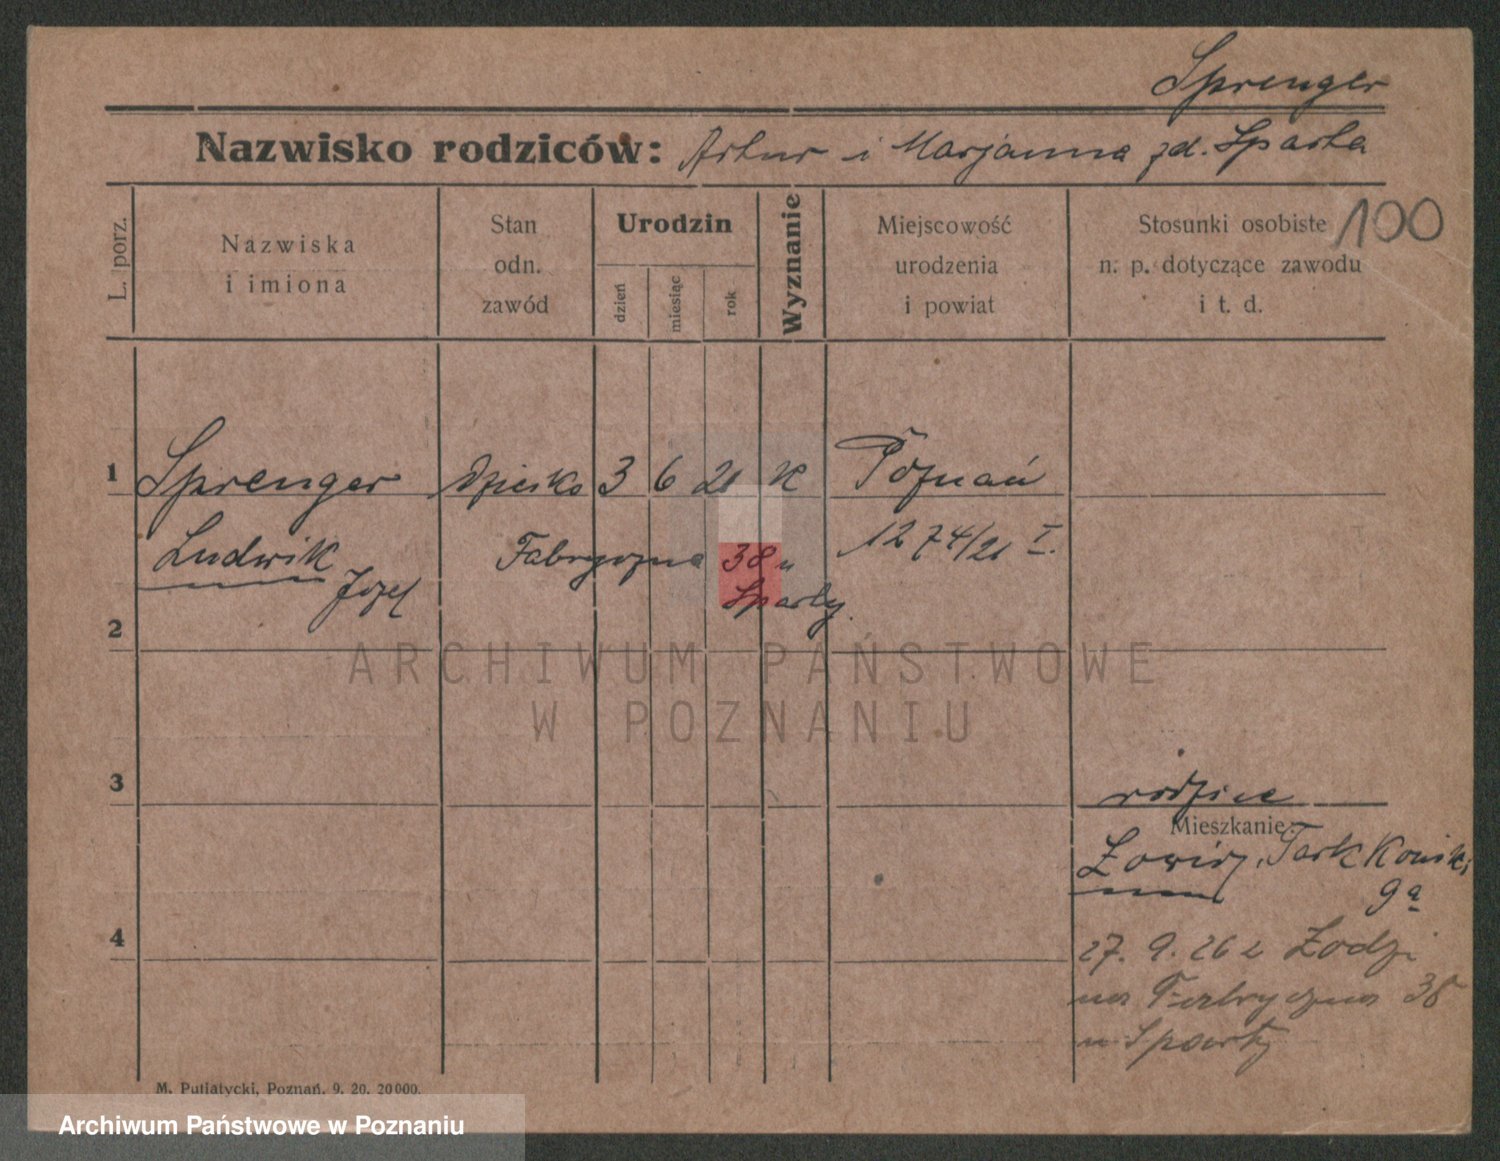 Sprenger
Nazwisko rodziców: Artur i Marjanna zd. Sparta
L. porz.
Nazwiska
i imiona
Stan
odn.
zawód
Urodzin
dzień
miesiąc
rok
Wyznanie
Miejscowość
urodzenia
i powiat
Stosunki osobiste
n. p. dotyczące zawodu
i t. d.
100
1 Sprenger dziecko 3 6 21 K Poznań
Ludwik Fabryczna 38 u 1274/21 I.
Józef Sparty
2
ARCHIWUM PAŃSTWOWE
W POZNANIU
3
rodzice
Mieszkanie:
9a
4
27. 9. 26 z Łodzi
na Fabryczna 38
u Sparty
M. Putiatycki, Poznań. 9. 20. 20000.
Archiwum Państwowe w Poznaniu